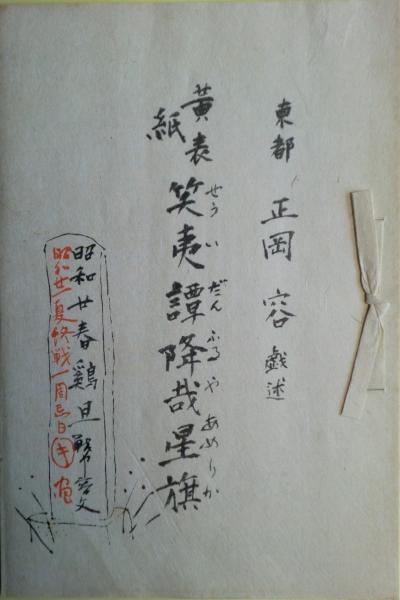 東都 正岡 容 戯述
黄表紙 笑夷譚降哉星旗
せうい だん ふるや あめりか
昭和廿春鶏旦
昭和廿一夏終戦一周忌日